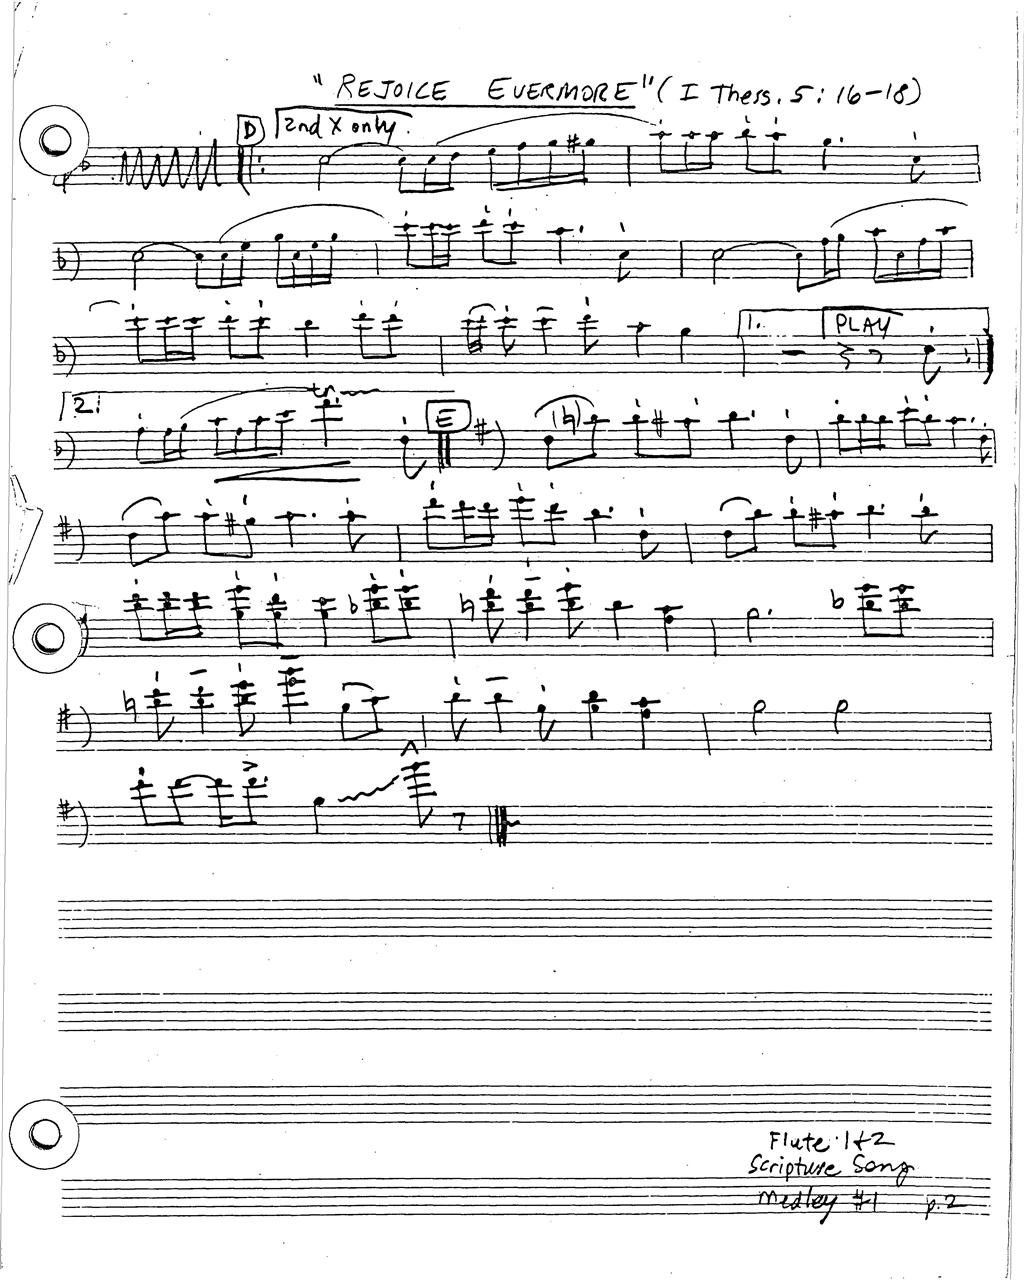 "REJOICE EVERMORE" (I Thess. 5:16-18)
D 2nd X only.
1. PLAY
2. tr
E
Flute 1 & 2
Scripture Song
Medley #1 p.2